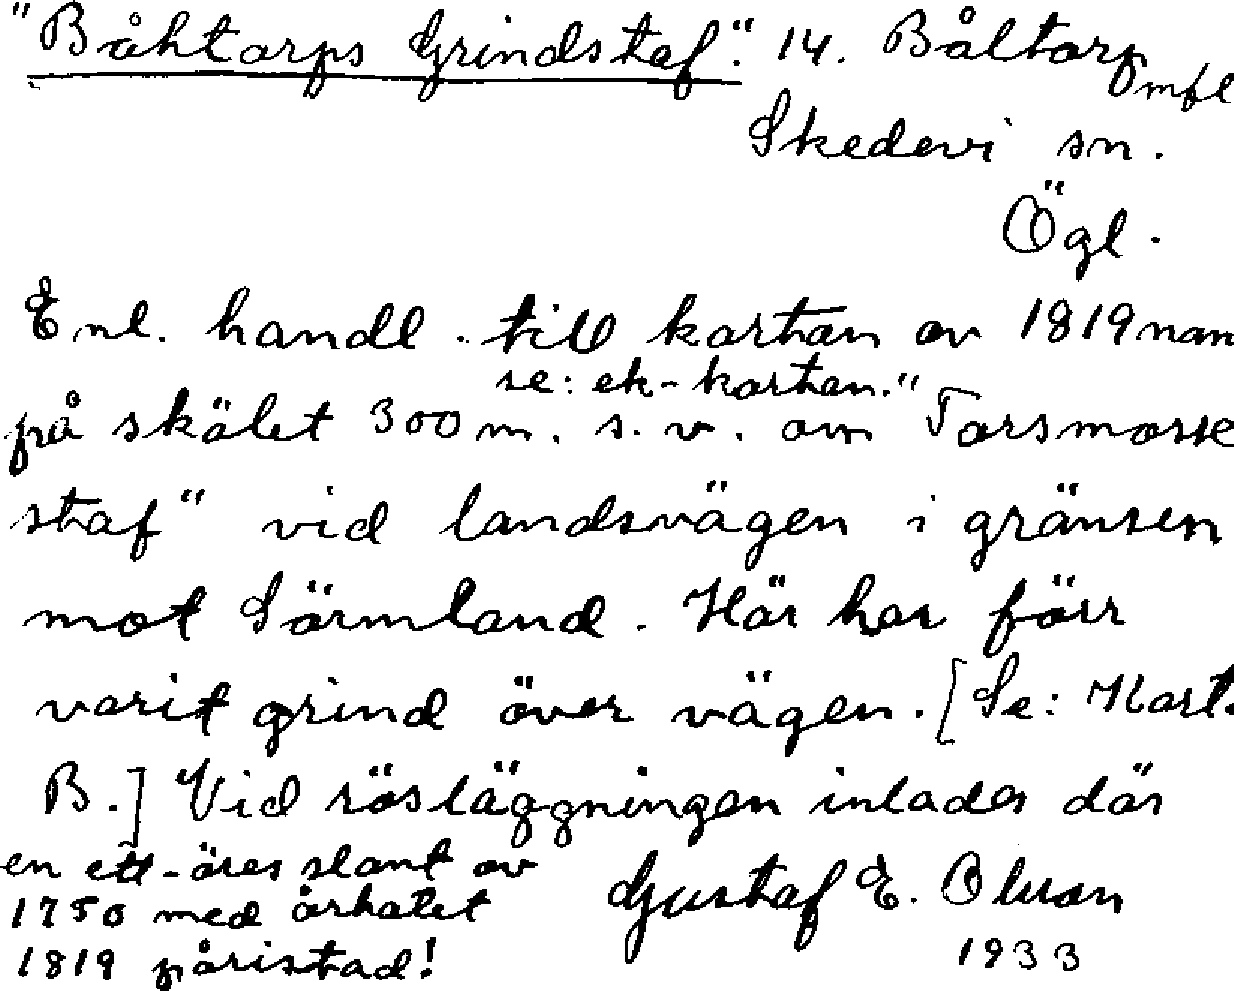 "Båhtorps Grindstaf". 14. Båltorp mfl
Skedevi sn.
Ögl.
Enl. handl. till kartan av 1819 namn
se: ek-kartan."
på skälet 300 m. s.v. om "Torsmosse
staf" vid landsvägen i gränsen
mot Sörmland. Här har förr
varit grind över vägen. [Se: Kart.
B.] Vid rösläggningen inlades där
en ett-öres slant av
1750 med årtalet
1819 påristad!
Gustaf E. Olsson
1933